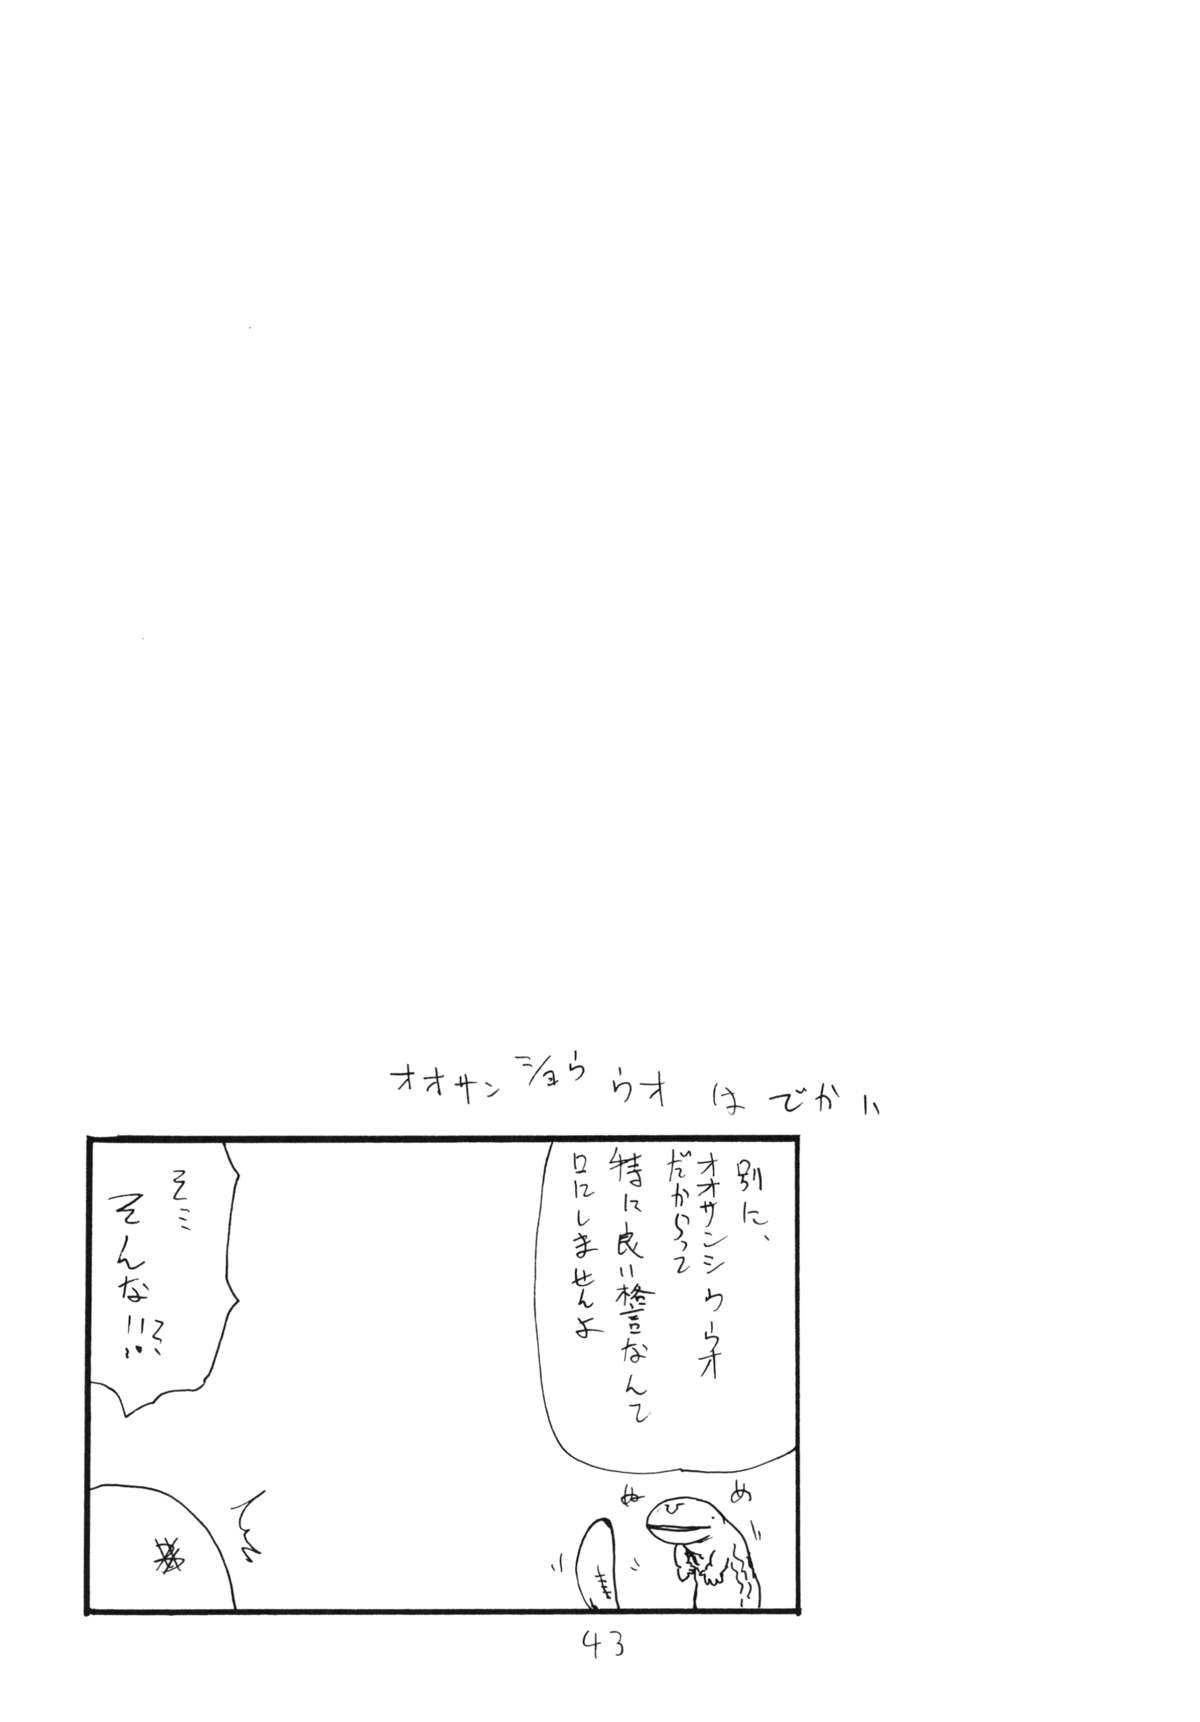 オオサンショウウオ は でかい
別に、
オオサンショウウオ
だからって
特に良い格言なんて
口にしませんよ
め
ぬ
そミ
そんな!!?
43